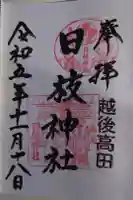 奉拝
越後高田
日枝神社
令和五年十一月十八日